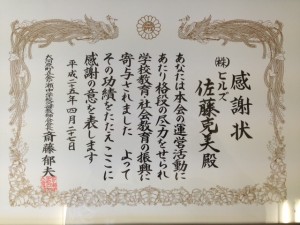 感謝状
㈱ヒルズ
佐藤克美殿
あなたは本会の運営活動に
あたり格段の尽力をせられ
学校教育・社会教育の振興に
寄与されました よって
その功績をたたえここに
感謝の意を表します
平成二十五年四月二十七日
斎藤郁夫